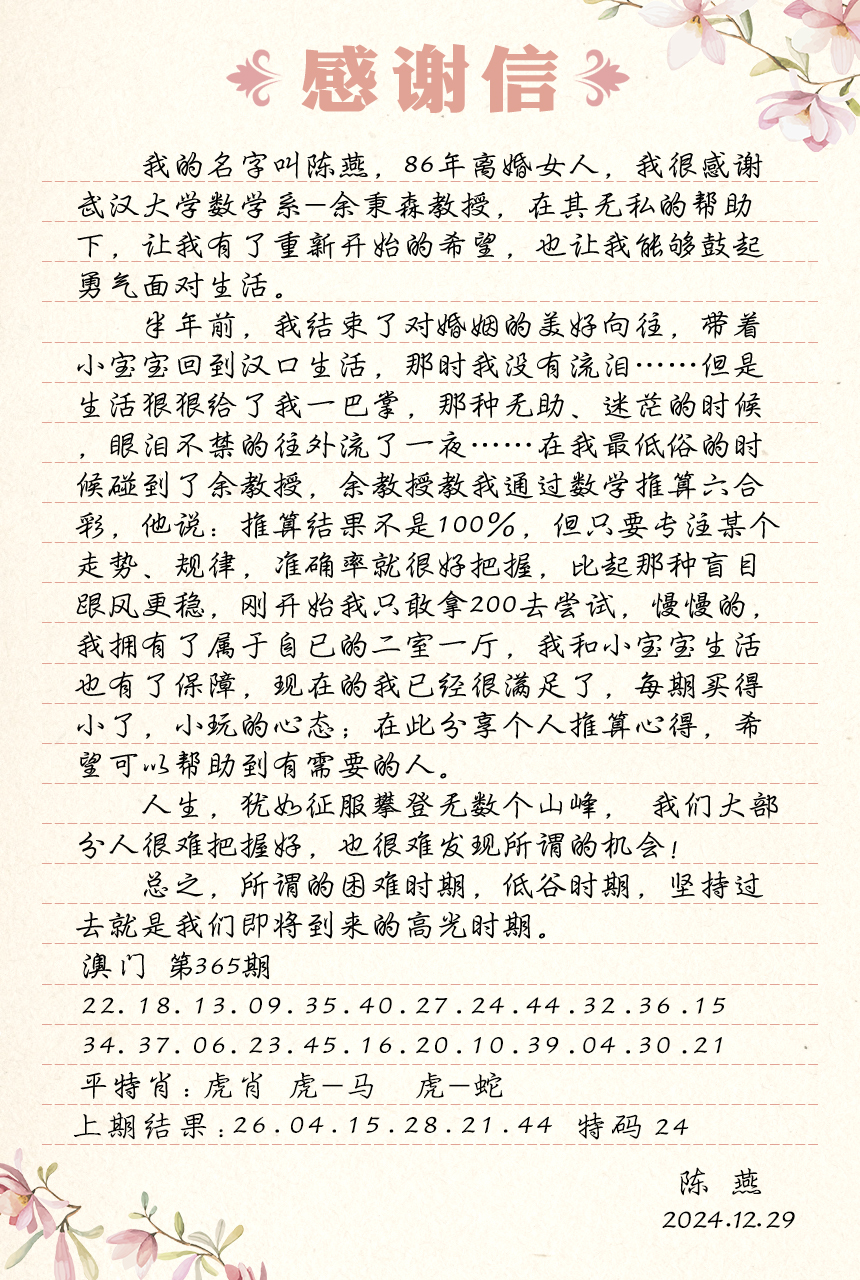 感谢信
我的名字叫陈燕，86年离婚女人，我很感谢
武汉大学数学系—余秉森教授，在其无私的帮助
下，让我有了重新开始的希望，也让我能够鼓起
勇气面对生活。
半年前，我结束了对婚姻的美好向往，带着
小宝宝回到汉口生活，那时我没有流泪……但是
生活狠狠给了我一巴掌，那种无助、迷茫的时候
，眼泪不禁的往外流了一夜……在我最低俗的时
候碰到了余教授，余教授教我通过数学推算六合
彩，他说：推算结果不是100%，但只要专注某个
走势、规律，准确率就很好把握，比起那种盲目
跟风更稳，刚开始我只敢拿200去尝试，慢慢的，
我拥有了属于自已的二室一厅，我和小宝宝生活
也有了保障，现在的我已经很满足了，每期买得
小了，小玩的心态；在此分享个人推算心得，希
望可以帮助到有需要的人。
人生，犹如征服攀登无数个山峰， 我们大部
分人很难把握好，也很难发现所谓的机会！
总之，所谓的困难时期，低谷时期，坚持过
去就是我们即将到来的高光时期。
澳门 第365期
22.18.13.09.35.40.27.24.44.32.36.15
34.37.06.23.45.16.20.10.39.04.30.21
平特肖：虎肖 虎—马 虎—蛇
上期结果：26.04.15.28.21.44 特码 24
陈 燕
2024.12.29